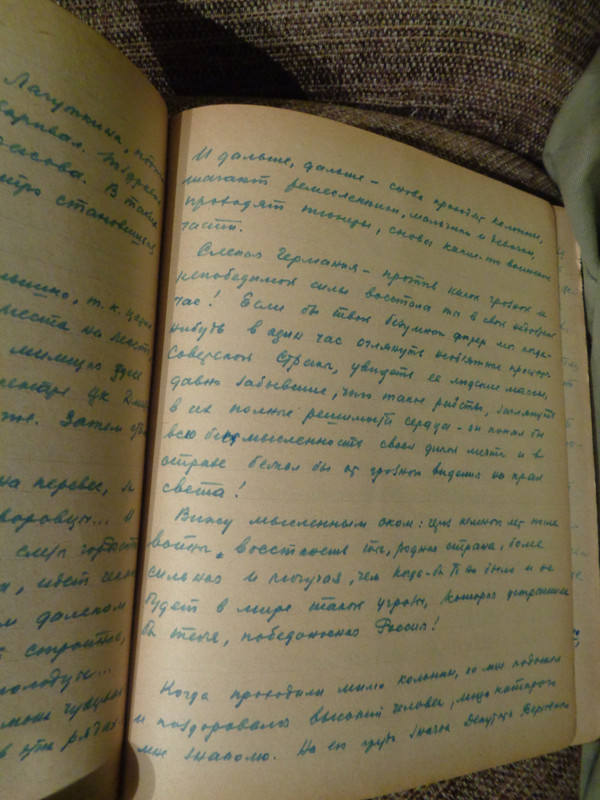 Лагуткина,
В та
становившися
т.к.
места на
милицию
же. Затем
на перевес, я
воровцы... И
слезы гордости
далеком
строится,
молодцы...
в эти рядах
И дальше, дальше – снова проходят колонны,
шагают ремесленники, мальчики и девочки,
проходят снова какие-то воинские
части.
Слепая Германия – против каких грозных и
непобедимых сил восстала ты в свой недобрый
час! Если бы твой безумный фюрер мог когда-
нибудь в один час оглянуть необъятные просторы
Советской Страны, увидеть ее людские массы,
давно забывшие, что такое рабство, заглянуть
в их полные решимости сердца – он понял бы
всю бессмысленность своей дикой мечты и в
страхе бежал бы от грозного видения на край
света!
Вижу мысленным оком:
войны, восстанешь ты, родная страна, более
сильная и могучая, чем когда-либо ты была и не
будет в мире такой угрозы, которая устрашила
бы тебя, победоносная Россия!
Когда проходили мимо колонны, ко мне подошел
и поздоровался высокий человек, лицо которого
мне знакомо. На его груди значок Депутата Верховного